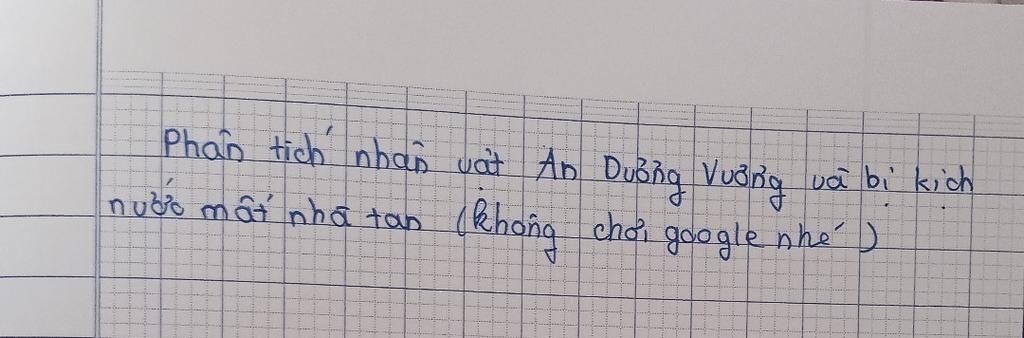 Phân tích nhân vật An Dương Vương và bi kịch
nước mất nhà tan (không chơi google nhé)